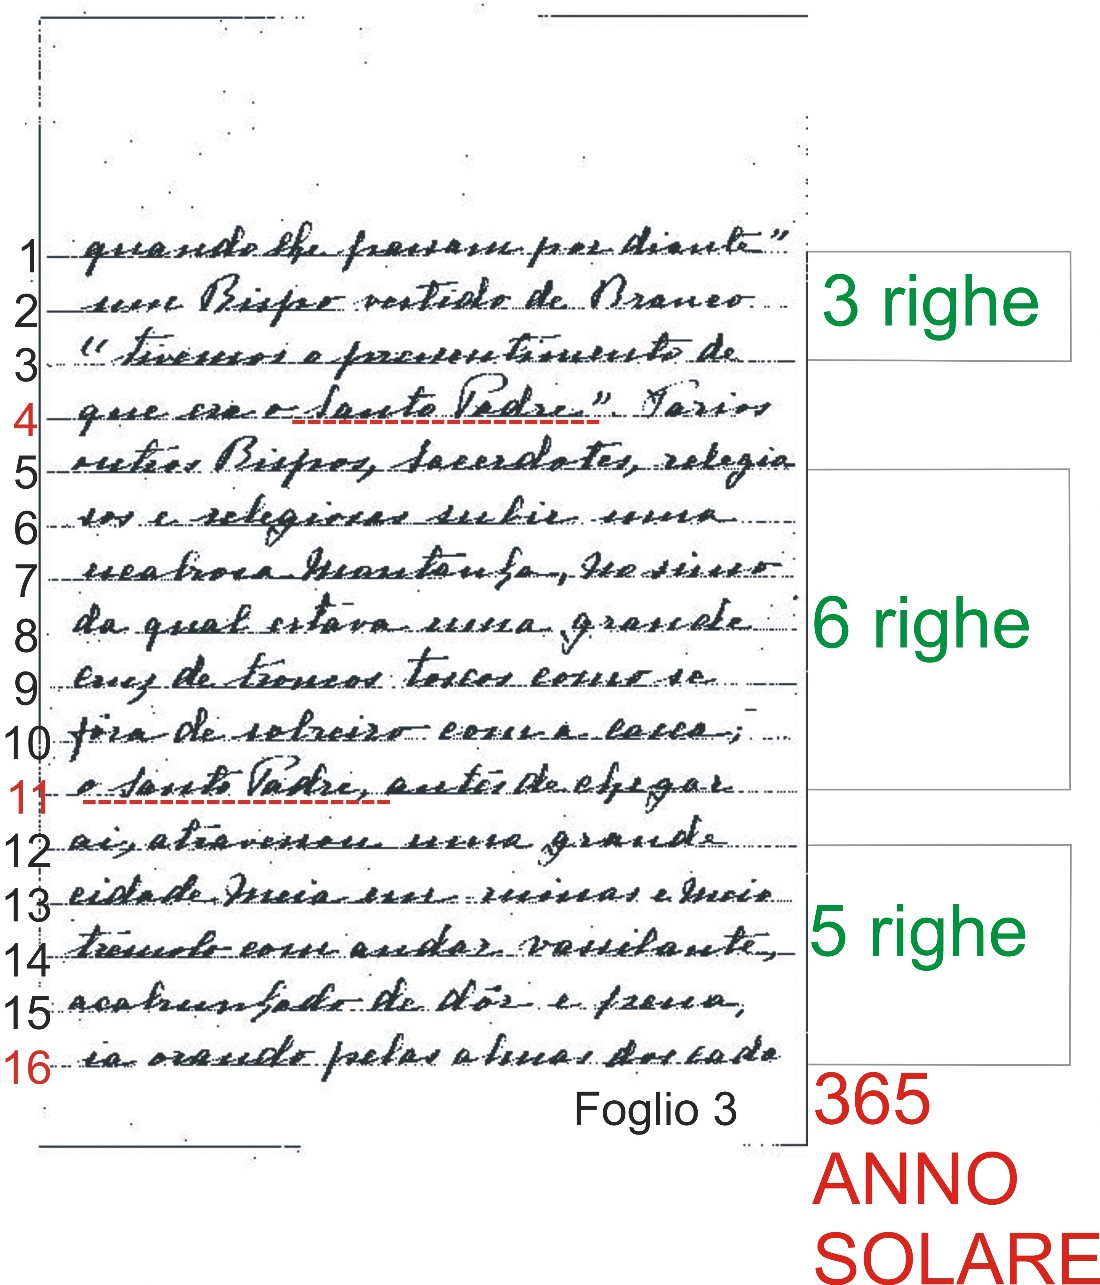 1 quando lhe passam por diante"
2 um Bispo vestido de Branco
3 "tivemos o pressentimento de
4 que era o Santo Padre". Varios
5 outros Bispos, Sacerdotes, religio
6 sos e religiosas subir uma
7 escabrosa montanha, no simo
8 da qual estava uma grande
9 Cruz de troncos toscos como se
10 fôra de sobreiro com a casca;
11 o Santo Padre, antes de chegar
12 aí, atravessou uma grande
13 cidade meia em ruinas e meio
14 tremulo com andar vassilante,
15 acabrunhado de dôr e pena,
16 ia orando pelas almas dos cada
3 righe
6 righe
5 righe
Foglio 3
365
ANNO
SOLARE